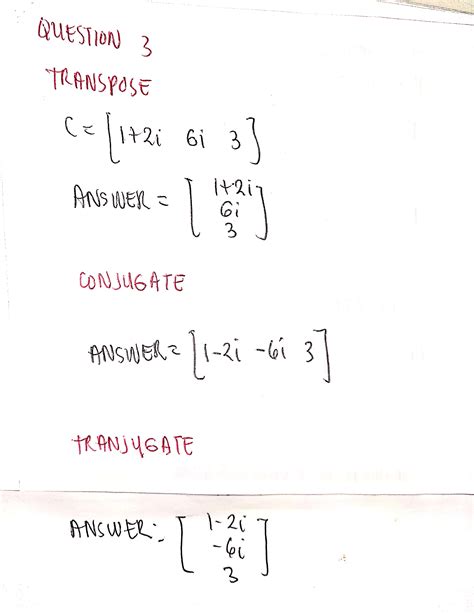 QUESTION 3
TRANSPOSE
C = [1+2i 6i 3]
ANSWER = [1+2i
6i
3]
CONJUGATE
ANSWER = [1-2i -6i 3]
TRANJUGATE
ANSWER: [1-2i
-6i
3]